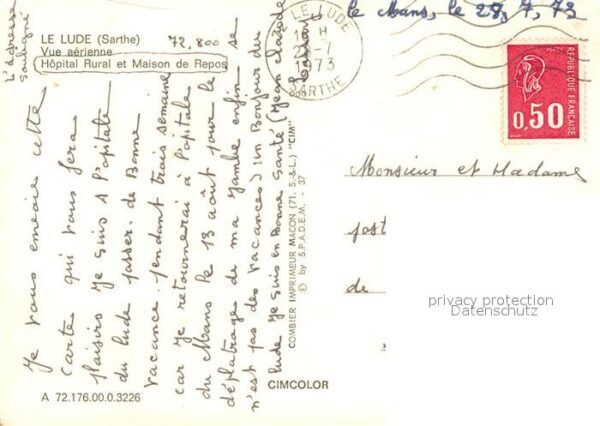 LE LUDE (Sarthe) 72,800
Vue aérienne
Hôpital Rural et Maison de Repos
L'adresse
Souligné
Je vous envoie cette
carte qui vous fera
plaisirs Je suis A l'opitale
du lude passer. de Bonne
vacance. pendant trais semaine
car Je retournerai à l'opitale
du Mans le 13 août pour le
déplatrage de ma Jambe enfin se
n'est pas des vacances) un Bonjour du
lude Je suis en Bonne Santé (Jean claude
A 72.176.00.0.3226
CIMCOLOR
COMBIER IMPRIMEUR MACON (71. S.-&-L.) "CIM"
© by S.P.A.D.E.M. - 37
LE LUDE
H
-7
1973
SARTHE
le Mans, le 28, 7, 73
REPUBLIQUE FRANÇAISE
0,50
Monsieur et Madame
post
de
privacy protection
Datenschutz